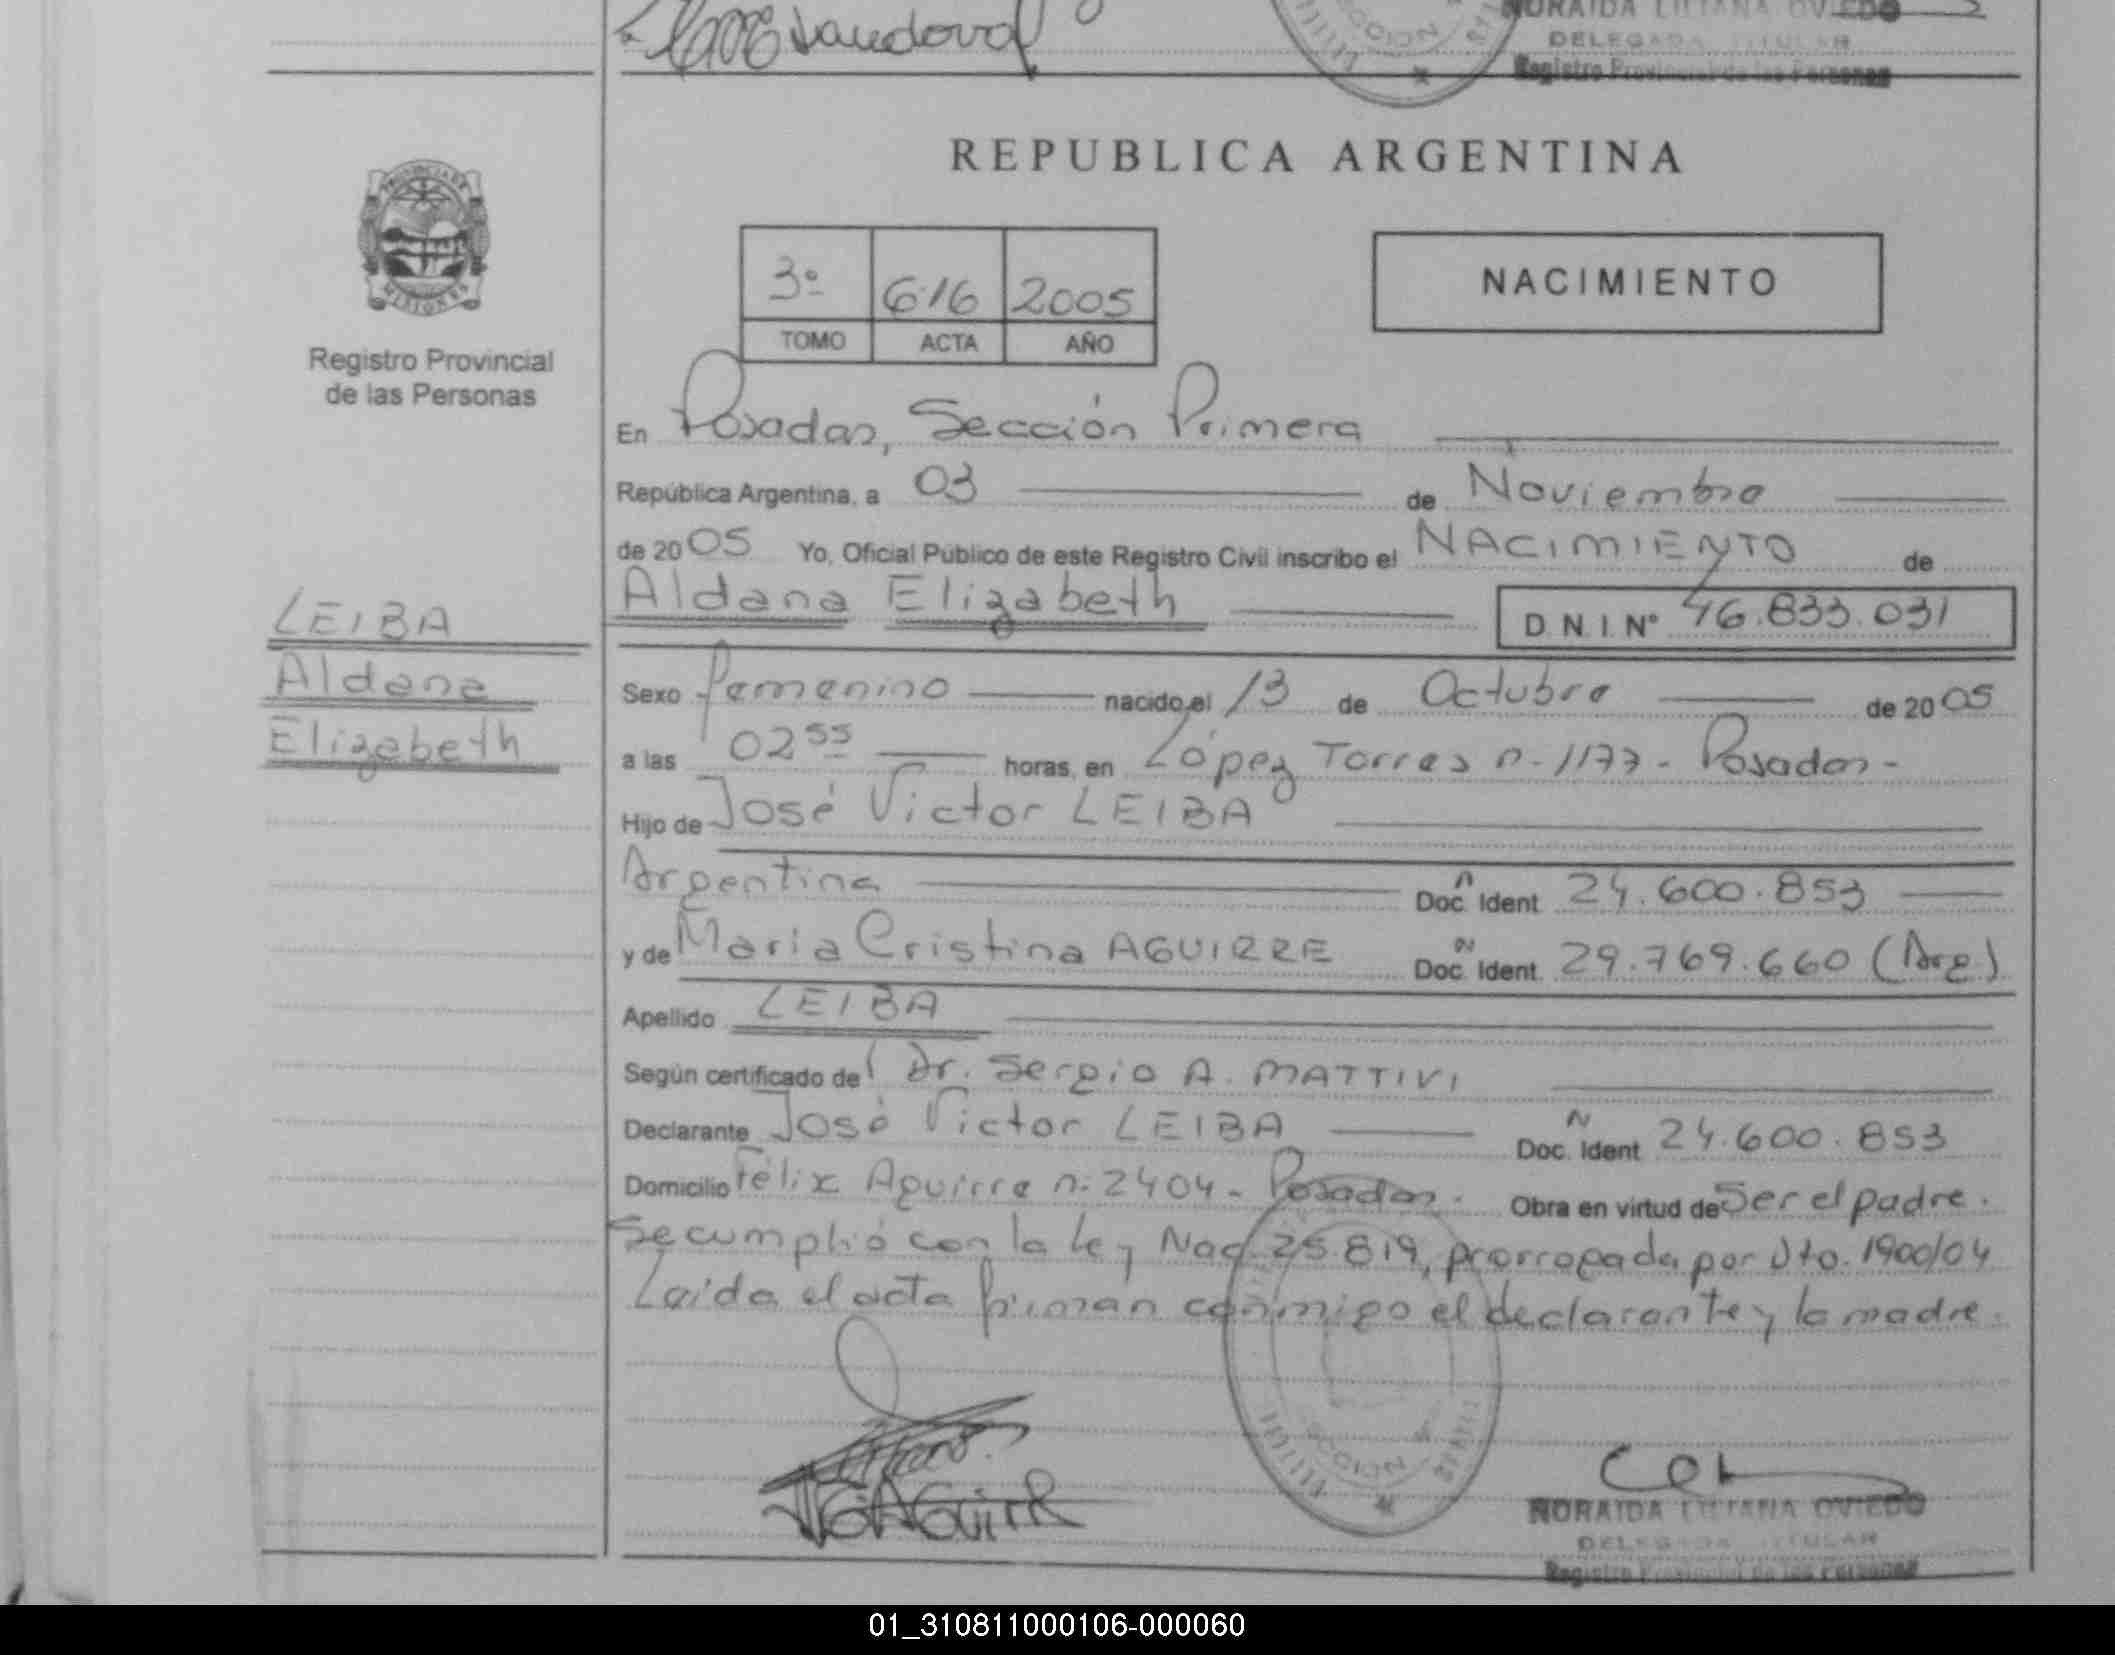 Sandoval
NORAIDA LILIANA OVIEDO
DELEGADA TITULAR
Registro Provincial de las Personas
REPUBLICA ARGENTINA
PROVINCIA DE
MISIONES
Registro Provincial
de las Personas
3º 616 2005
TOMO ACTA AÑO
NACIMIENTO
En Posadas, Sección Primera
República Argentina, a 03 de Noviembre
de 2005 Yo, Oficial Público de este Registro Civil inscribo el NACIMIENTO de
Aldana Elizabeth D.N.I. Nº 46.833.031
LEIBA
Aldana
Elizabeth
Sexo femenino nacido el 13 de Octubre de 2005
a las 02 55 horas, en López Torres n. 1177 - Posadas -
Hijo de José Victor LEIBA
Argentina Doc. Ident. 24.600.853
y de Maria Cristina AGUIRRE Doc. Ident. 29.769.660 (Arg)
Apellido LEIBA
Según certificado del Dr. Sergio A. MATTIVI
Declarante José Victor LEIBA Doc. Ident. 24.600.853
Domicilio Félix Aguirre n: 2404 - Posadas. Obra en virtud de Ser el padre.
Se cumplió con la Ley Nac. 25.819, prorrogada por Dto. 1900/04
Leída el acta firman conmigo el declarante y la madre.
SECCION
NORAIDA LILIANA OVIEDO
DELEGADA TITULAR
Registro Provincial de las Personas
01_310811000106-000060